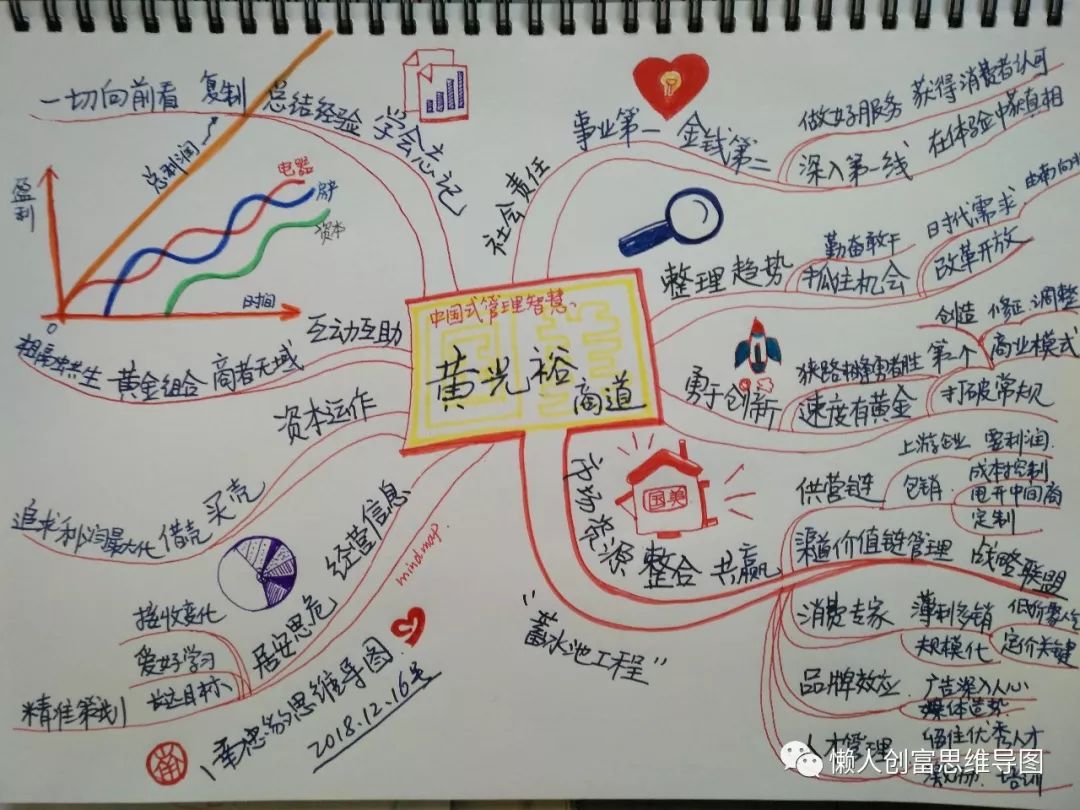 中国式管理智慧
黄光裕
商道
社会责任
事业第一 金钱第二
做好服务 获得消费者认可
深入第一线 在体验中获真相
整理趋势
勤奋敢干
抓住机会
时代需求
改革开放
勇于创新
狭路相逢勇者胜
速度有黄金
第一个
创造 修正 调整
商业模式
打破常规
市场资源整合 共赢
国美
供营链
包销
上游企业 要利润
成本控制
甩开中间商
定制
渠道价值链管理 战略联盟
消费专家
薄利多销
规模化
定价关键
品牌效应
广告深入人心
媒体造势
人才管理
留住优秀人才
培训
“蓄水池工程”
经营信息
居安思危
接收变化
爱好学习
长远目标
精准策划
资本运作
买壳
借壳
追求利润最大化
互动互助
商者无域
黄金组合
相互共生
学会忘记
总结经验
复制
一切向前看
总利润
盈利
电器
资本
时间
0
mind map
思维导图
2018.12.16号
懒人创富思维导图